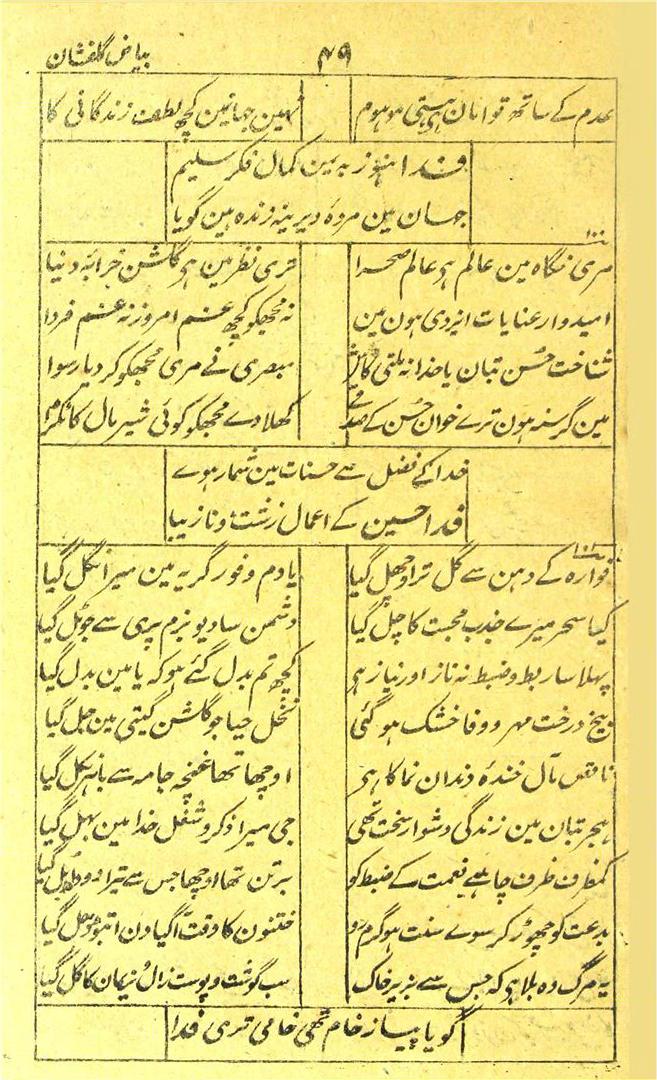 بیاض گلفشان
۴۹
عدم کے ساتھ توامان ہی ہستی موہوم نہین جہانمین کچھ لطف زندگانی کا
فدا ہنوز یہ ہین کمال فکر سلیم
جہان مین مردۂ دیرینہ زندہ ہین گویا
۱۰۰
مری نگاہ مین عالم ہو عالم صحرا تری نظر مین ہو گلشن خرابۂ دنیا
امیدوار عنایات ایزدی ہون مین نہ مجھکو کچھ غم امروز نہ غم فردا
شناخت حسن بتان یا خدا نہ ملتی کاش مبصری نے مری مجھکو کر دیا رسوا
مین گرسنہ ہون ترے خوان حسن کے صدقے کھلا دے مجھکو کوئی شیرمال کا ٹکڑا
خدا کے فضل سے حسنات مین شمار ہوے
فدا حسین کے اعمال زشت و نازیبا
۱۰۱
فوارہ کے دہن سے گل تر اوچھل گیا یا دم وفور گریہ مین میرا نکل گیا
کیا سحر میرے جذب محبت کا چل گیا دشمن سا دیو بزم پری سے جو ٹل گیا
پہلا سا ربط و ضبط نہ ناز اور نیاز ہو کچھ تم بدل گئے ہو کہ یا مین بدل گیا
بیخ درخت مہر و وفا خشک ہو گئی نخل حیا جو گلشن گیتی مین جل گیا
ناقص مآل خندۂ دندان نما کا ہی اوچھا تھا غنچہ جامہ سے باہر نکل گیا
ہجر بتان مین زندگی دشوار سخت تھی جی میرا ذکر و شغل خدا مین بہل گیا
کمظرف ظرف چاہئے نعمت کے ضبط کو برتن تھا اوچھا جس سے تیرا دودھ اوبل گیا
بدعت کو چھوڑ کر سوے سنت ہو گرم رو ختنون کا وقت آگیا دن اب تو ڈھل گیا
یہ مرگ وہ بلا ہو کہ جس سے بزیر خاک سب گوشت و پوست زال و نریمان کا گل گیا
گویا پیاز خام تھی خامی تری فدا